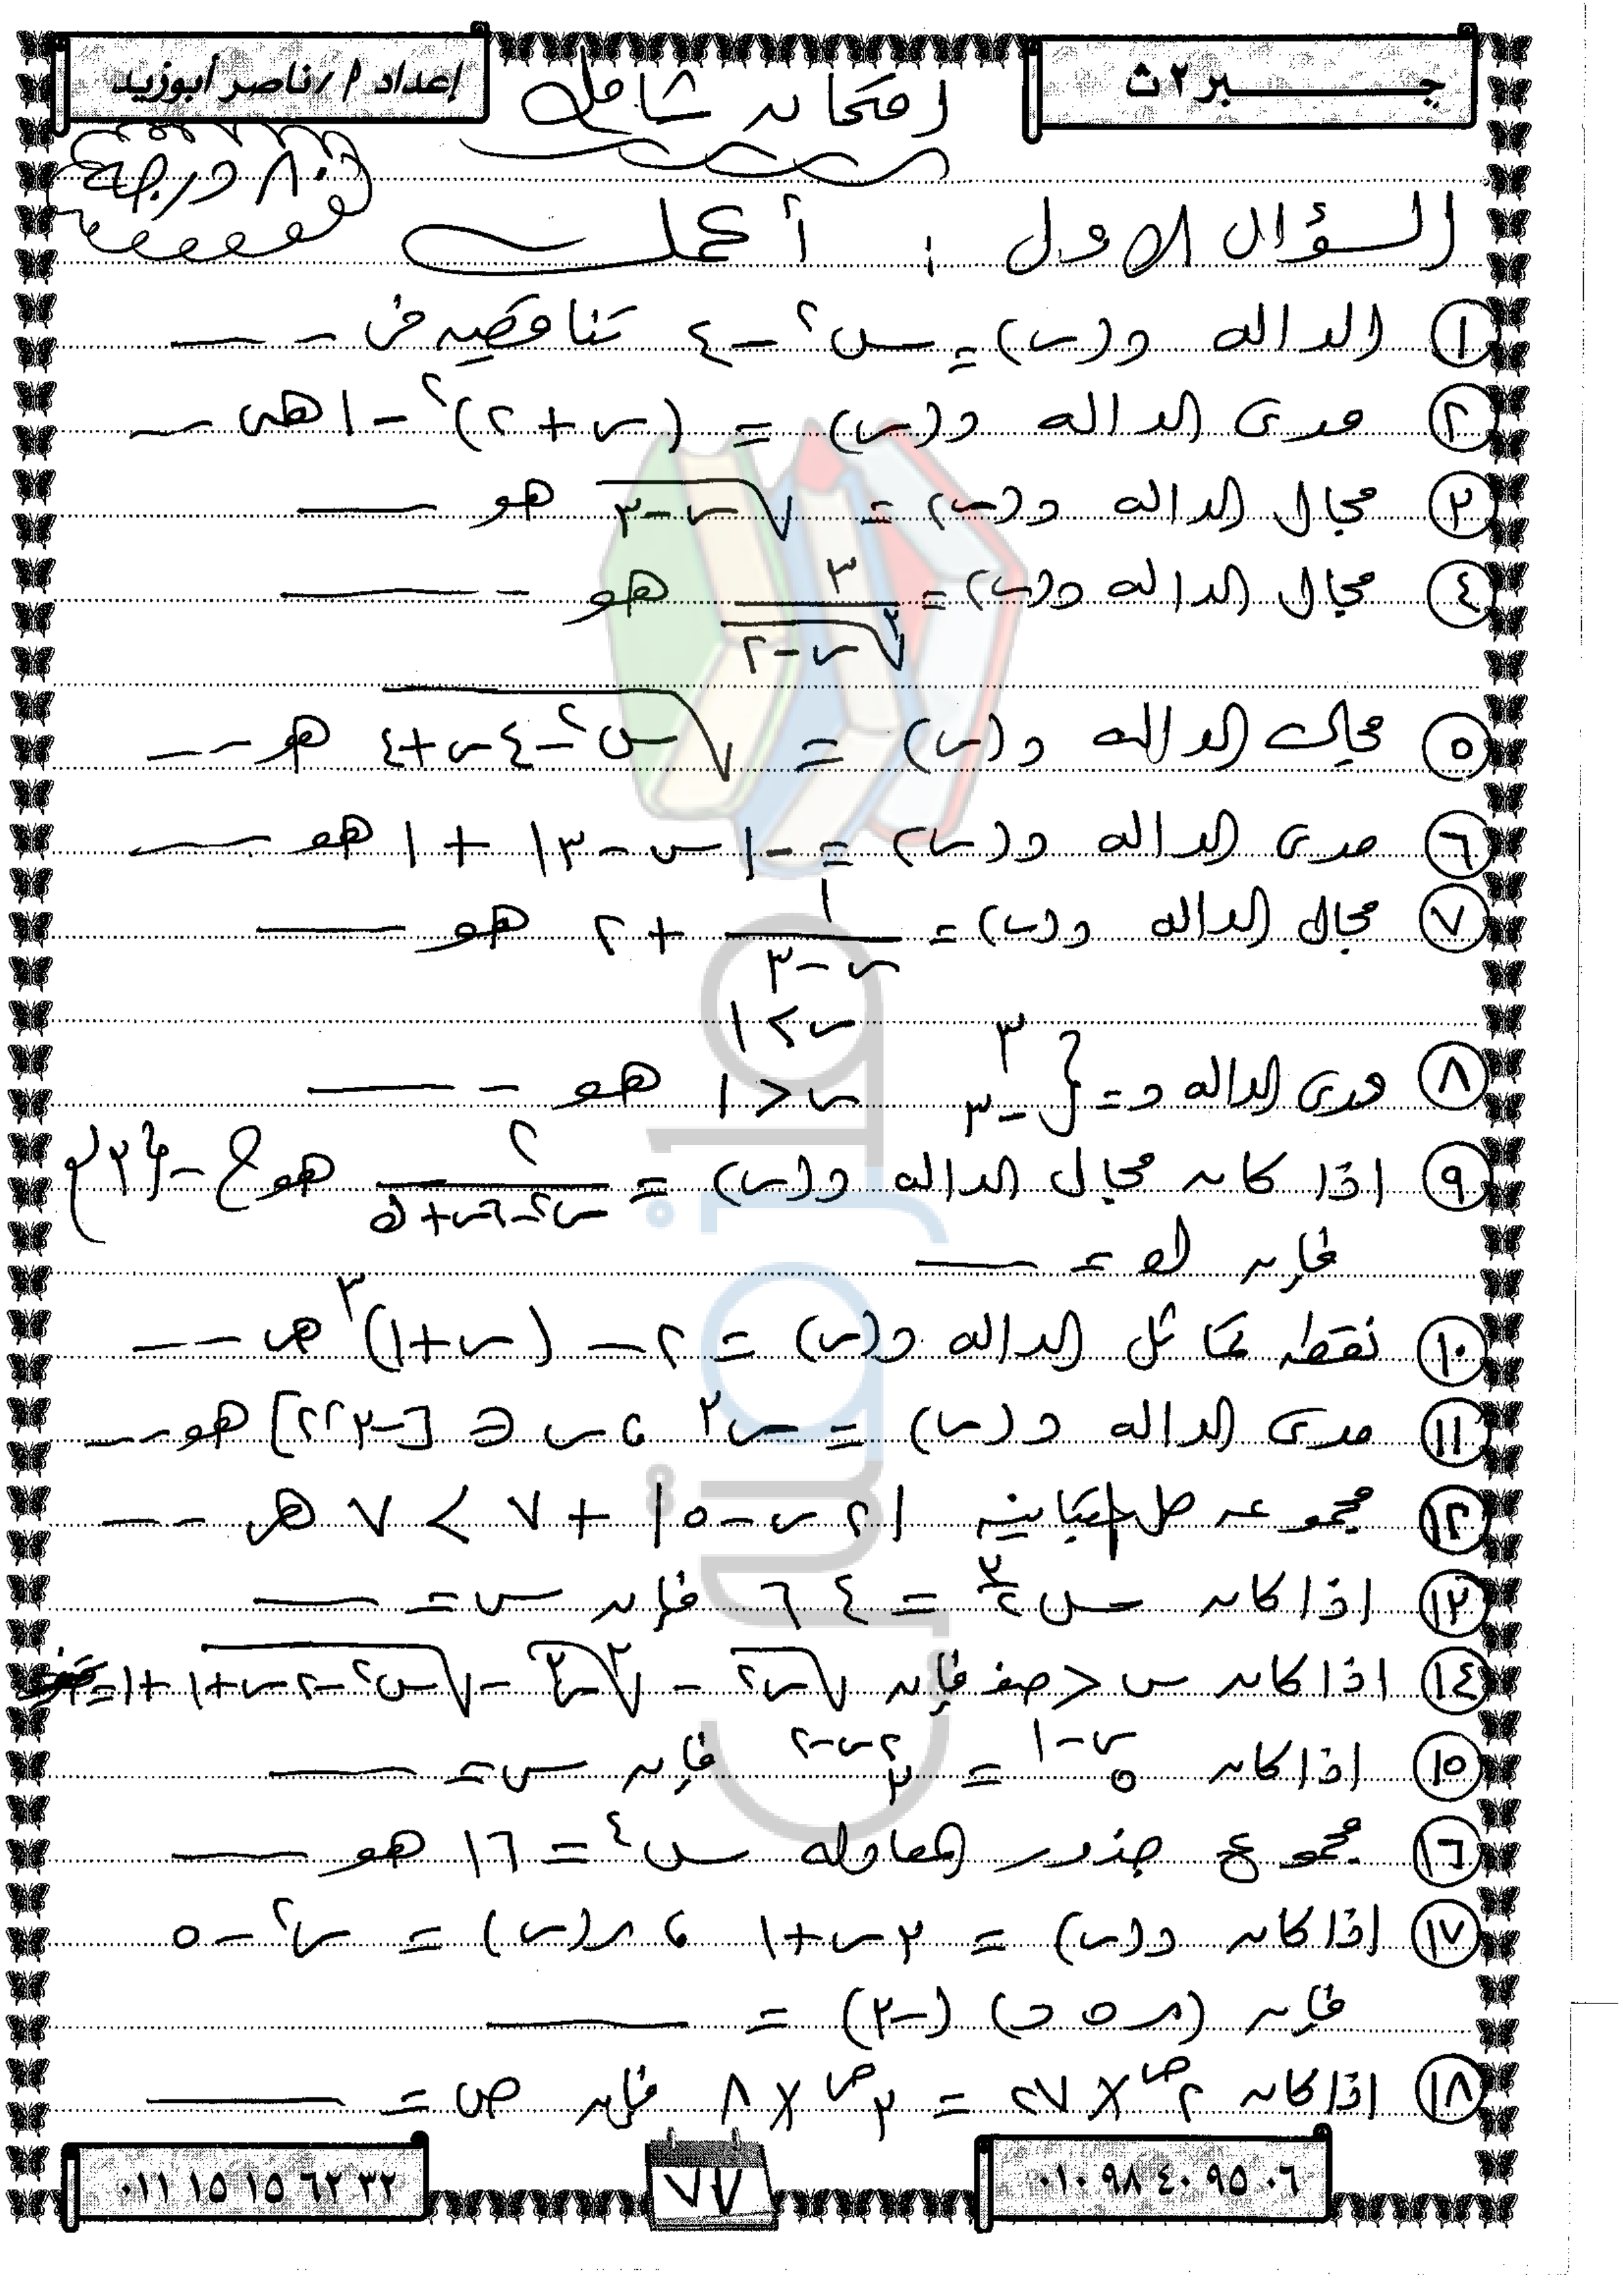 جبر ٢ ث
امتحان شامل
إعداد أ / ناصر أبوزيد
٨٠ درجة
السؤال الاول : أكمل
١ الداله د(س) = س٢ - ٤ تناقصيه فى --
٢ مدى الداله د(س) = (س+٢)٢ - ١ هى --
٣ مجال الداله د(س) = √(س-٣) هو --
٤ مجال الداله د(س) = ٣ / ∛(س-٢) هو --
٥ مجال الداله د(س) = √(س٢-٤س+٤) هو --
٦ مدى الداله د(س) = -|س-٣| + ١ هو --
٧ مجال الداله د(س) = ١/(س-٣) + ٢ هو --
٨ مدى الداله د = { ٣ س > ١
-٣ س < ١ هو --
٩ اذا كان مجال الداله د(س) = ٢/(س٢-٦س+ك) هو ح-{٣}
فإن ك = --
١٠ نقطه تماثل الداله د(س) = ٢ - (س+١)٣ هى --
١١ مدى الداله د(س) = س٣ ، س ∈ [-٣،٢] هو --
١٢ مجموعه حل المتباينه |٢س-٥| + ٧ < ٧ هى --
١٣ اذا كان س^(٣/٢) = ٦٤ فإن س = --
١٤ اذا كان س < صفر فإن √س٢ - ∛س٣ - √(س٢-٢س+١) + ١ =
١٥ اذا كان ٥^(س-١) = ٣^(٢س-٢) فإن س = --
١٦ مجموع جذور المعادله س٤ = ١٦ هو --
١٧ اذا كان د(س) = ٣س+١ ، ر(س) = س٢ - ٥
فإن (ر ∘ د) (-٢) = --
١٨ اذا كان ٢^ص × ٢٧ = ٣^ص × ٨ فإن ص = --
٠١٠ ٩٨ ٤٠ ٩٥ ٠٦
٧٧
٠١١ ١٥ ١٥ ٦٢ ٣٢